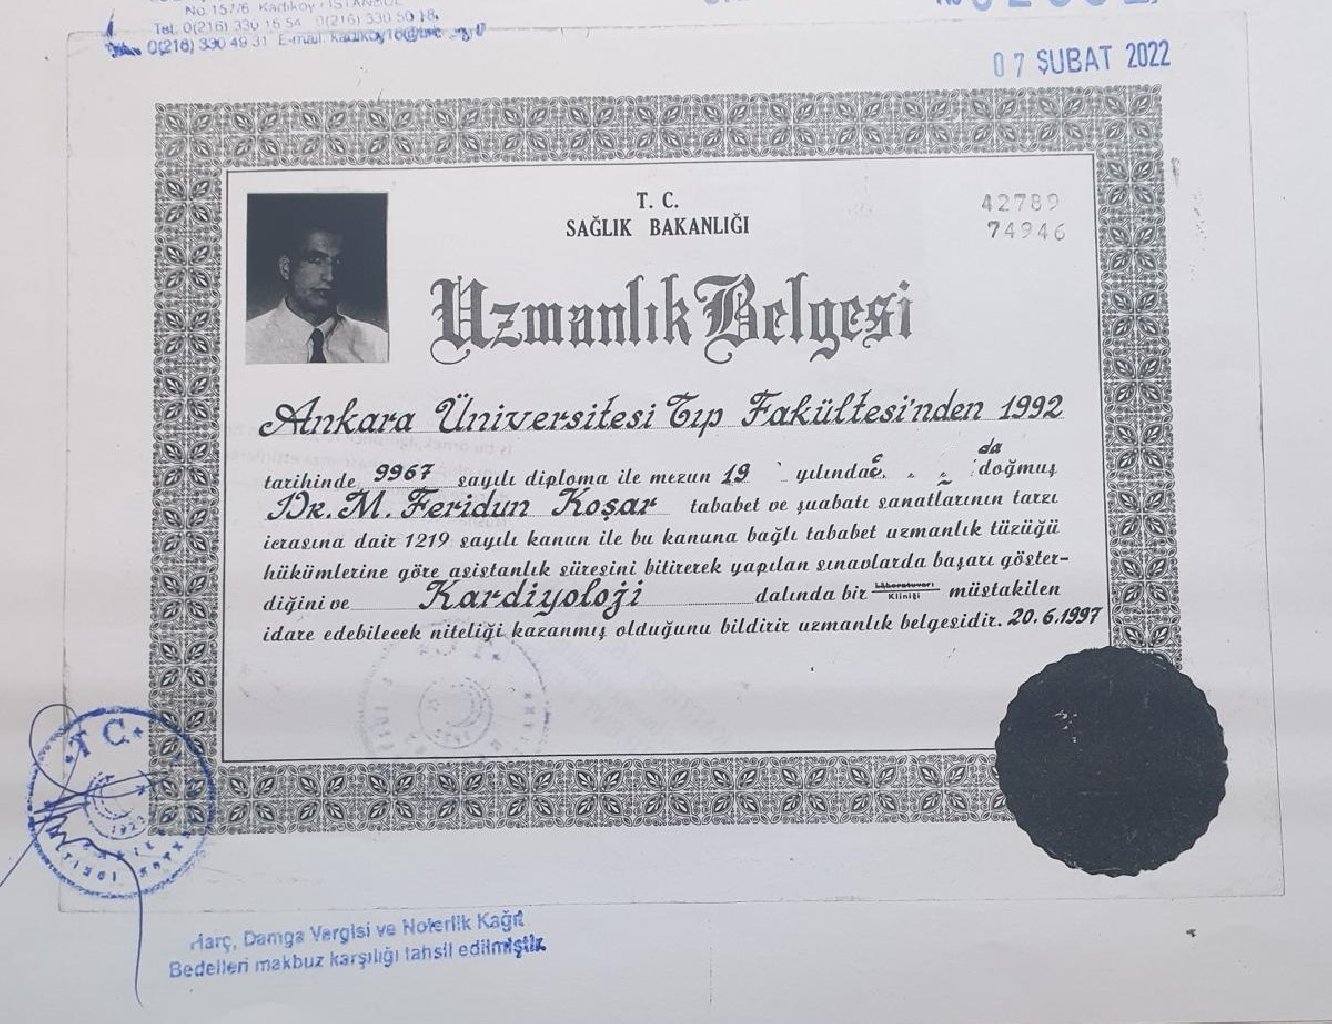 No.157/6 Kadıköy - İSTANBUL
Tel: 0(216) 330 15 54 0(216) 330 50 18
0(216) 330 49 31 E-mail:
07 ŞUBAT 2022
T. C.
SAĞLIK BAKANLIĞI
42789
74946
Uzmanlık Belgesi
Ankara Üniversitesi Tıp Fakültesi'nden 1992
tarihinde 9967 sayılı diploma ile mezun 19 yılında da doğmuş
Dr. M. Feridun Koşar tababet ve şuabatı sanatlarının tarzı
icrasına dair 1219 sayılı kanun ile bu kanuna bağlı tababet uzmanlık tüzüğü
hükümlerine göre asistanlık süresini bitirerek yapılan sınavlarda başarı göster-
diğini ve Kardiyoloji dalında bir Lâboratuvarı Kliniği müstakilen
idare edebilecek niteliği kazanmış olduğunu bildirir uzmanlık belgesidir. 20.6.1997
T.C.
Harç, Damga Vergisi ve Noterlik Kağıt
Bedelleri makbuz karşılığı tahsil edilmiştir.